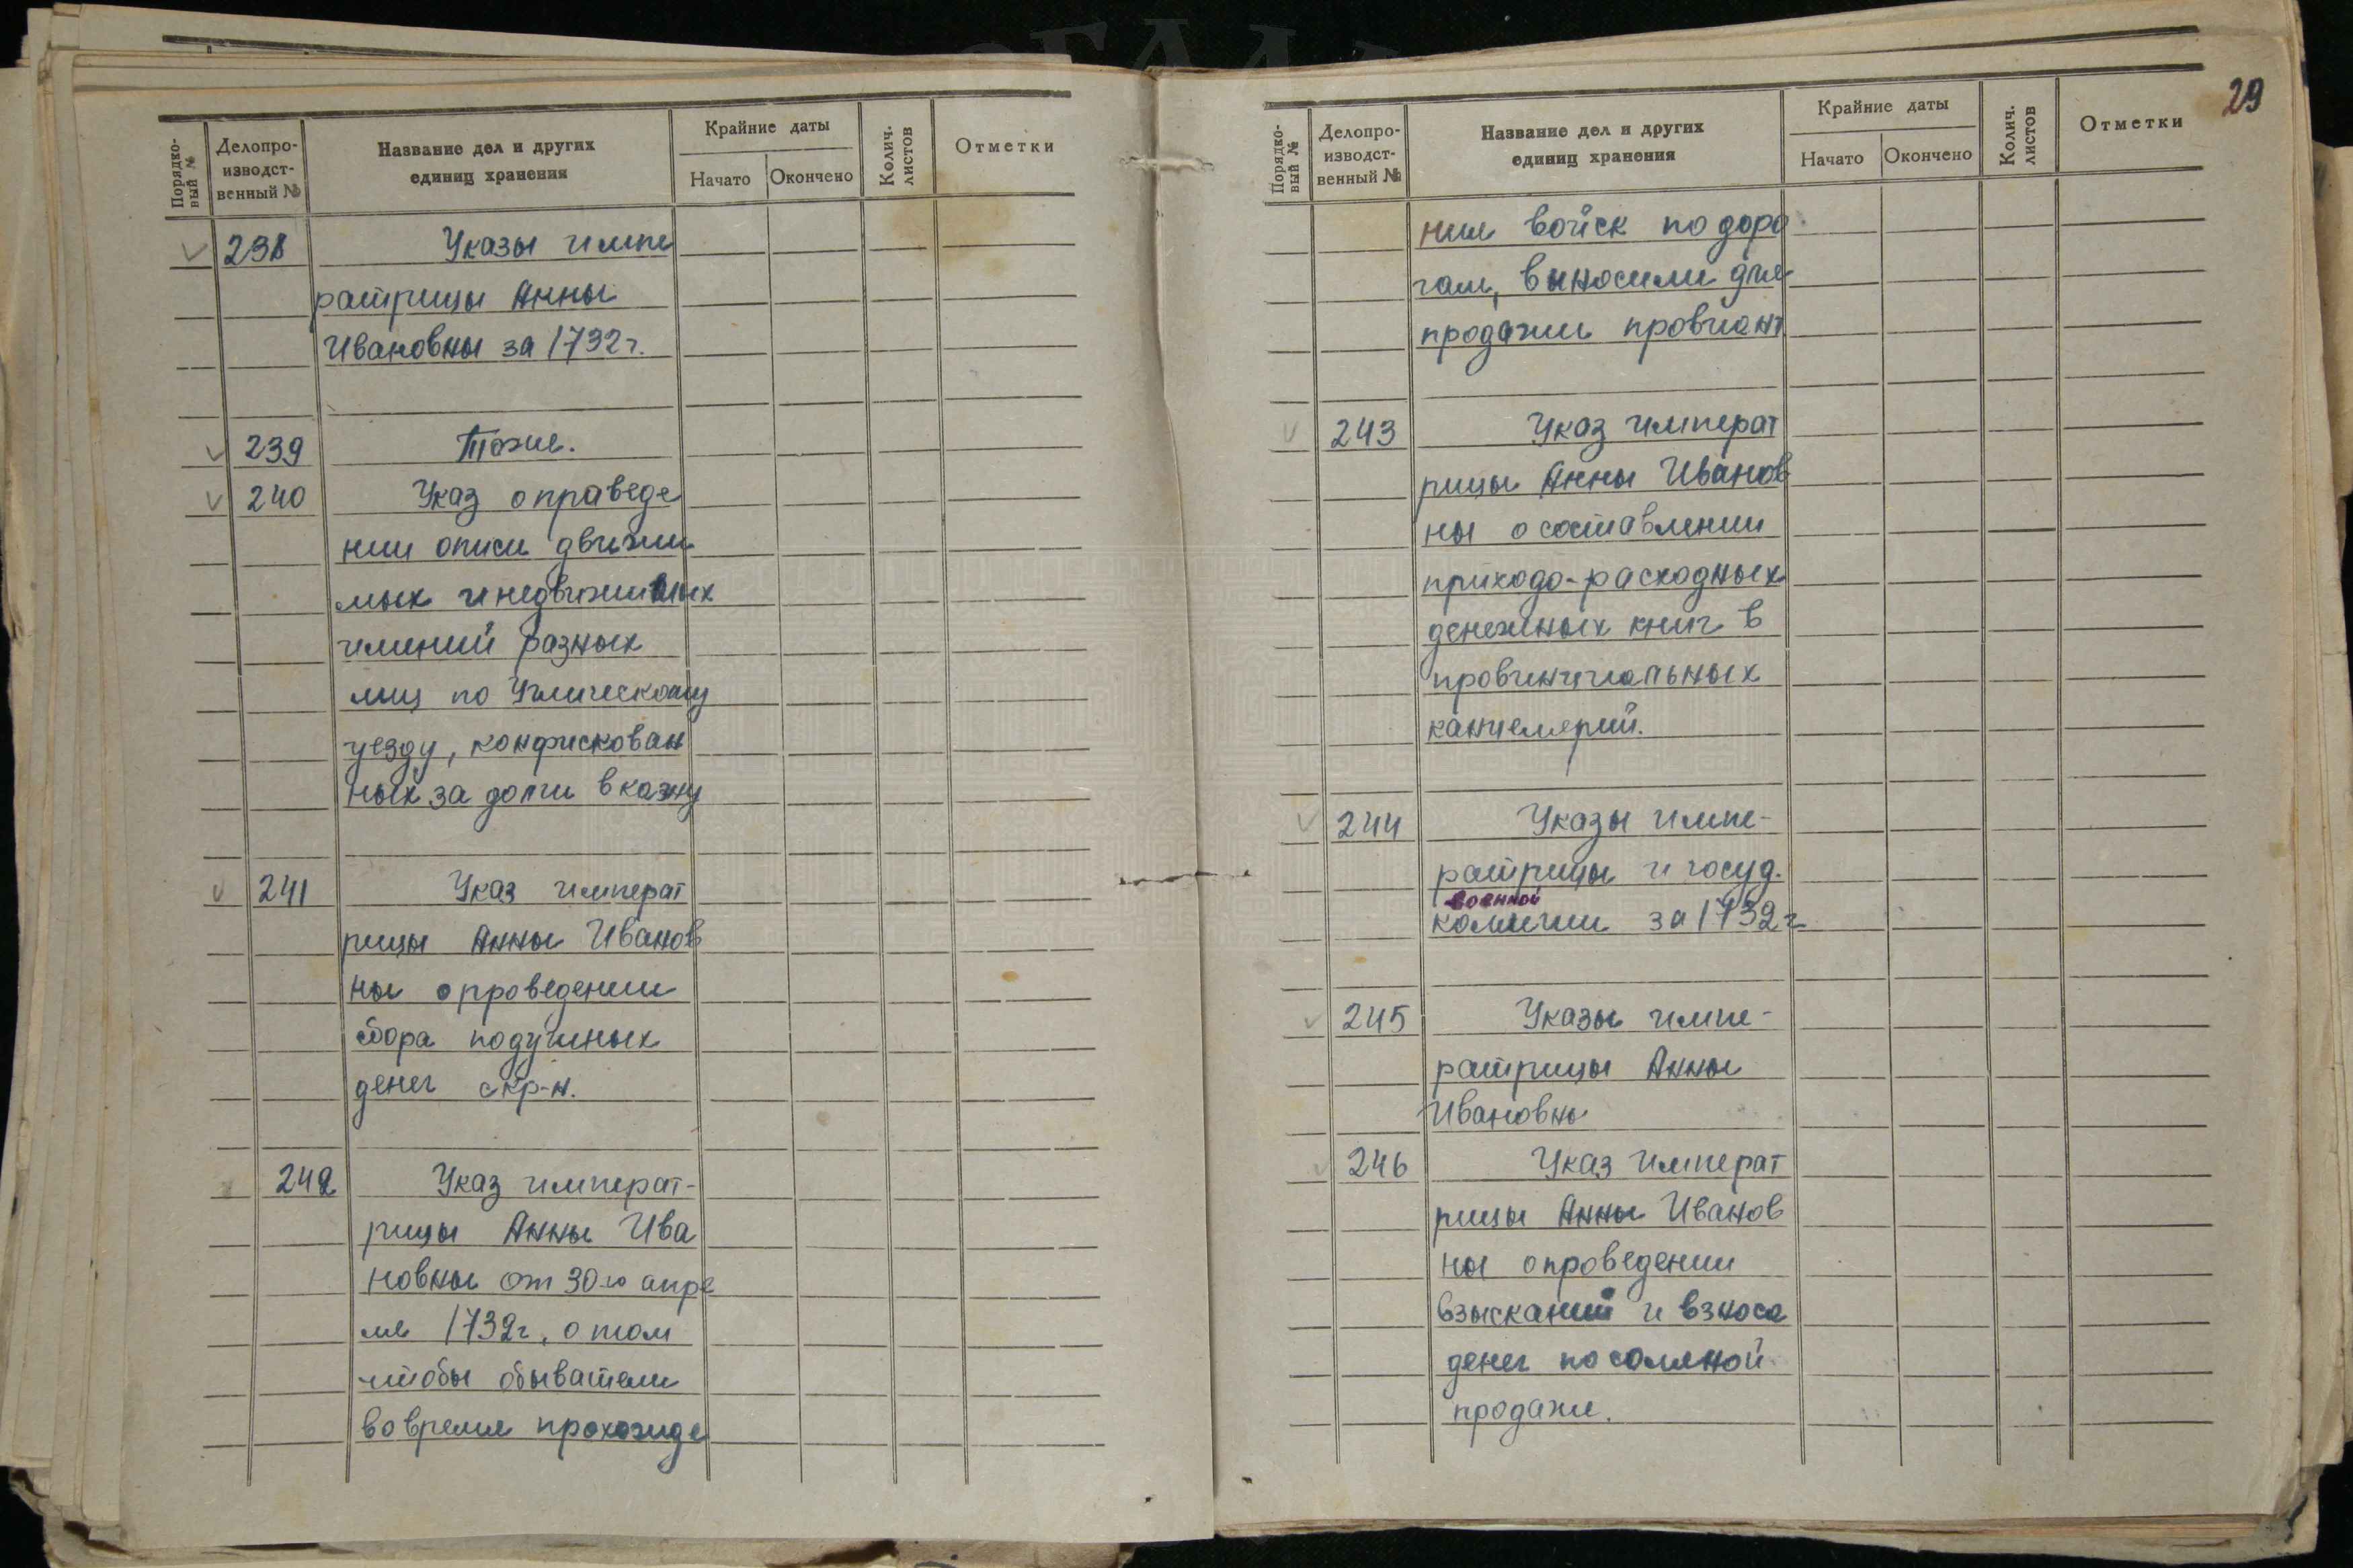 Порядко-
вый №
Делопро-
изводст-
венный №
Название дел и других
единиц хранения
Крайние даты
Начато
Окончено
Колич.
листов
Отметки
238 Указы импе
ратрицы Анны
Ивановны за 1732 г.
239 Тоже.
240 Указ о праведе
нии описи движи
мых и недвижимых
имений разных
лиц по Угличскому
уезду, конфискован
ных за долги в казну
241 Указ императ
рицы Анны Иванов
ны о проведении
сбора подушных
денег с кр-н.
242 Указ императ-
рицы Анны Ива
новны от 30-го апре
ля 1732 г. о том
чтобы обыватели
во время прохожде
29
Порядко-
вый №
Делопро-
изводст-
венный №
Название дел и других
единиц хранения
Крайние даты
Начато
Окончено
Колич.
листов
Отметки
ния войск по доро
гам, выносили для
продажи провиант
243 Указ императ
рицы Анны Иванов
ны о составлении
приходо-расходных
денежных книг в
провинциальных
канцелярий.
244 Указы импе-
ратрицы и госуд.
военной
коллегии за 1732 г
245 Указы импе-
ратрицы Анны
Ивановны
246 Указ императ
рицы Анны Иванов
ны о проведении
взысканий и взноса
денег по соляной
продаже.